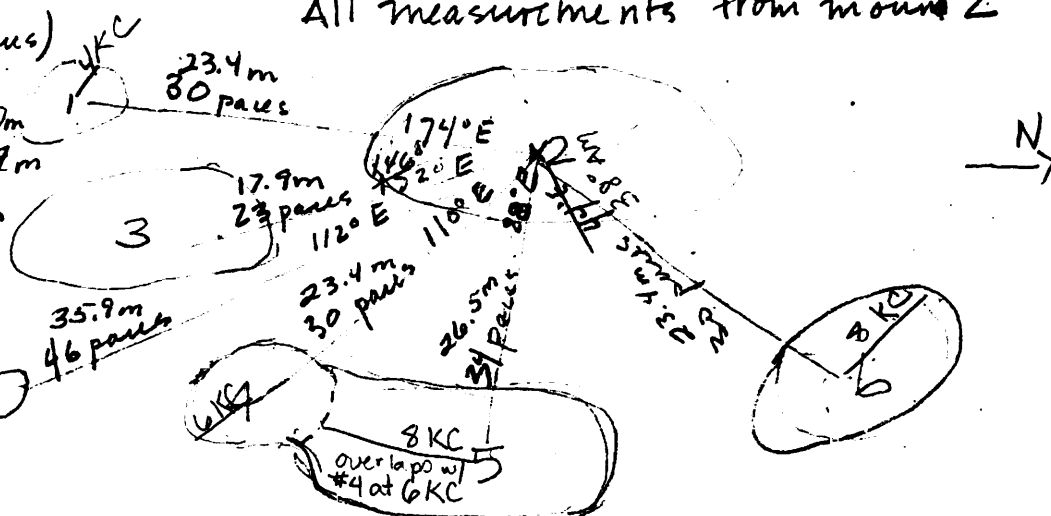 All measurements from mound 2
4KC
1
23.4m
30 paces
N
174° E
146°
20° E
2
38°
17.9m
23 paces
3
112° E
110° E
88°
35.9m
46 paces
23.4m
30 paces
26.5m
34 paces
23.4m
30 paces
6KC
4
8 KC
5
overlaps w/
#4 at 6KC
8 KC
6